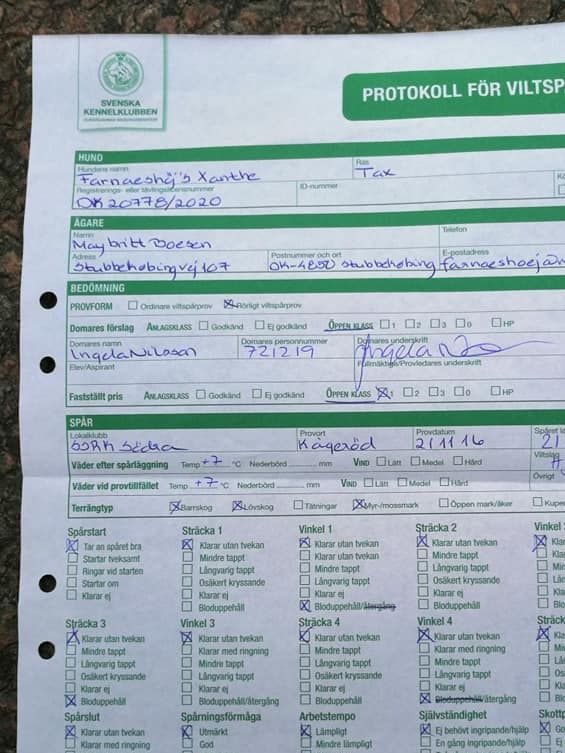 SVENSKA
KENNELKLUBBEN
PROTOKOLL FÖR VILTSP
HUND
Hundens namn Ras
Farnaeshøj's Xanthe Tax
Registrerings- eller tävlingslicensnummer ID-nummer
DK20778/2020
ÄGARE
Namn Telefon
Maybritt Doesen
Adress Postnummer och ort E-postadress
Stubbekøbingvej 107 DK-4850 Stubbekøbing farnaeshoej@
BEDÖMNING
PROVFORM Ordinare viltspårprov Rörligt viltspårprov
Domares förslag ANLAGSKLASS Godkänd Ej godkänd ÖPPEN KLASS 1 2 3 0 HP
Domares namn Domares personnummer Domares underskrift
Ingela Nilsson 721219
Elev/Aspirant Fullmäktige/Provledares underskrift
Fastställt pris ANLAGSKLASS Godkänd Ej godkänd ÖPPEN KLASS 1 2 3 0 HP
SPÅR
Lokalklubb Provort Provdatum Spåret
SSRK Södra Kågeröd 211116 21
Väder efter spårläggning Temp +7 °C Nederbörd mm VIND Lätt Medel Hård Viltslag
Väder vid provtillfället Temp +7 °C Nederbörd mm VIND Lätt Medel Hård Övrigt
Terrängtyp Barrskog Lövskog Tätningar Myr/mossmark Öppen mark/åker Kupe
Spårstart Sträcka 1 Vinkel 1 Sträcka 2 Vinkel
Tar an spåret bra Klarar utan tvekan Klarar utan tvekan Klarar utan tvekan Klar
Startar tveksamt Mindre tappt Klarar utan tvekan Mindre tappt Klar
Ringar vid starten Långvarig tappt Mindre tappt Långvarig tappt Min
Startar om Osäkert kryssande Långvarig tappt Osäkert kryssande Lån
Klarar ej Klarar ej Klarar ej Klarar ej Klar
Bloduppehåll Bloduppehåll/återgång Bloduppehåll Bloc
Sträcka 3 Vinkel 3 Sträcka 4 Vinkel 4 Sträck
Klarar utan tvekan Klarar utan tvekan Klarar utan tvekan Klarar utan tvekan Klar
Mindre tappt Klarar med ringning Mindre tappt Klarar med ringning Min
Långvarig tappt Mindre tappt Långvarig tappt Mindre tappt Lån
Osäkert kryssande Långvarig tappt Osäkert kryssande Långvarig tappt Osä
Klarar ej Klarar ej Klarar ej Klarar ej Klar
Bloduppehåll Bloduppehåll/återgång Bloduppehåll Bloduppehåll/återgång Bloc
Spårslut Spårningsförmåga Arbetstempo Självständighet Skottp
Klarar utan tvekan Utmärkt Lämpligt Ej behövt ingripande/hjälp Go
Klarar med ringning God Mindre lämpligt En gång ingripande/hjälp Ej